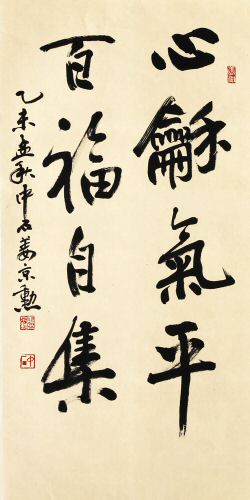 心龢氣平
百福自集
乙未孟秋中石姜京勲